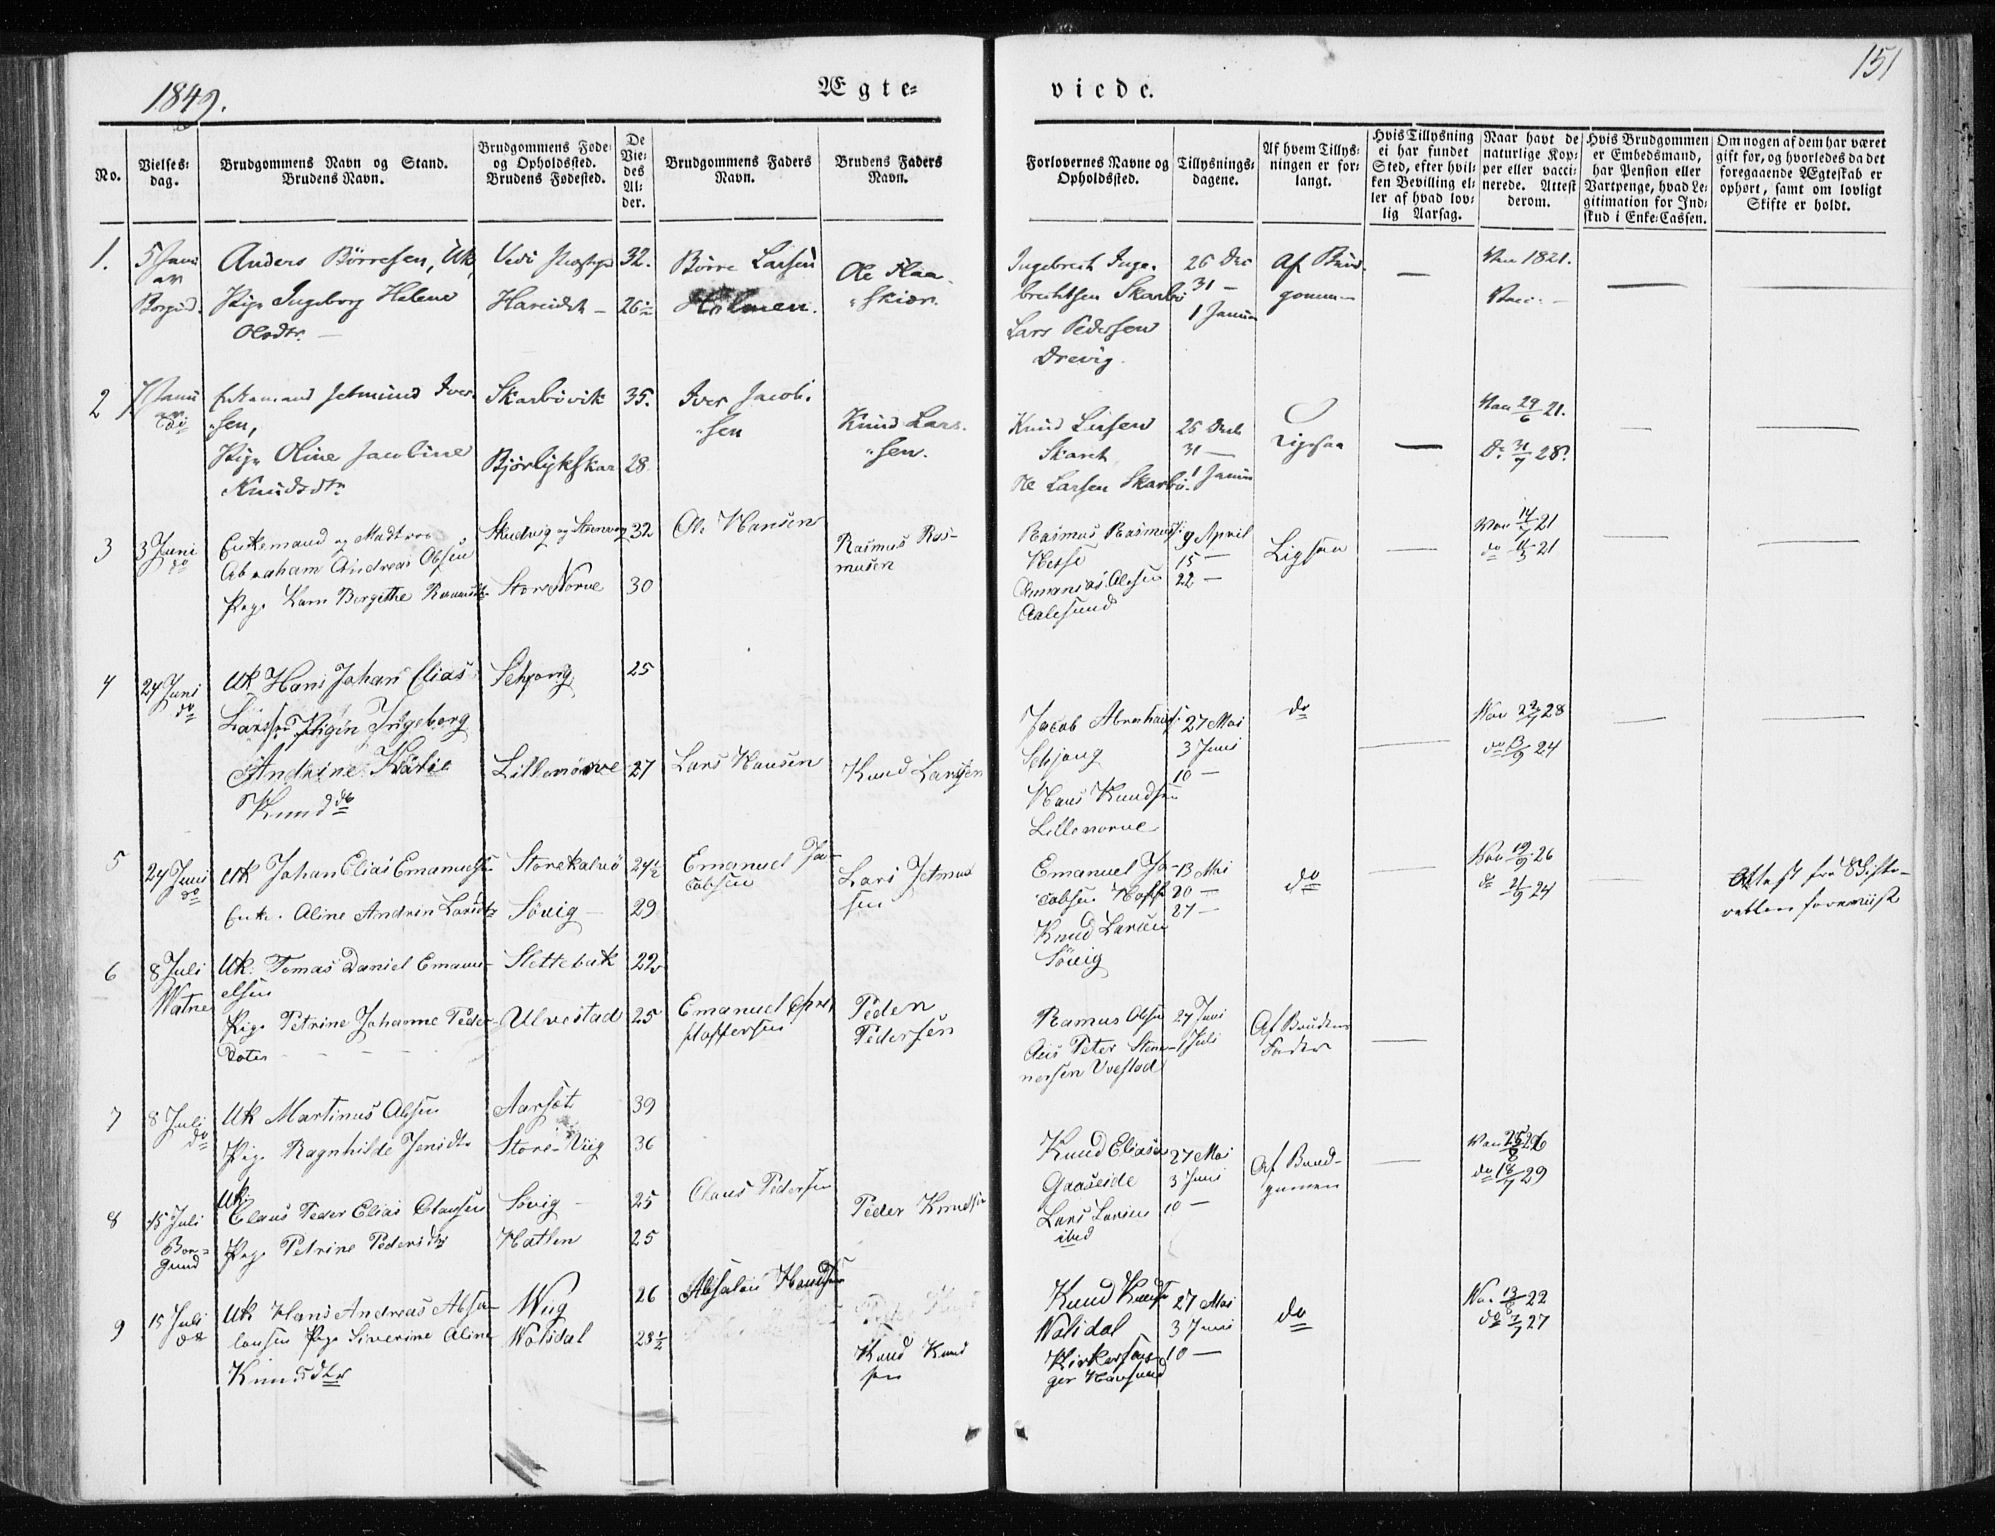 1849.
Ægte=
viede.
151
No.
Vielses=
dag.
Brudgommens Navn og Stand.
Brudens Navn.
Brudgommens Føde=
og Opholdssted.
Brudens Fødested.
De
Vie=
des
Al=
der.
Brudgommens Faders
Navn.
Brudens Faders
Navn.
Forlovernes Navne og
Opholdssted.
Tillysnings=
dagene.
Af hvem Tillys=
ningen er for=
langt.
Hvis Tillysning
ei har fundet
Sted, efter hvil=
ken Bevilling el=
ler af hvad lov=
lig Aarsag.
Naar havt de
naturlige Kop=
per eller vacci=
nerede. Attest
derom.
Hvis Brudgommen
er Embedsmand,
har Pension eller
Vartpenge, hvad Le=
gitimation for Ind=
skud i Enke=Cassen.
Om nogen af dem har været
gift før, og hvorledes da det
foregaaende Ægteskab er
ophørt, samt om lovligt
Skifte er holdt.
1.
5 Janu
ar
Borgund.
Anders Børresen, Uk
Pige Ingeborg Helene
Olsdtr.
Hareidet
32.
26½
Børre Larsen
Holmen.
Ole Flaa
skiær.
Ingebrecht Inge-
brechtsen Skarbø
Lars Pedersen
Drevig.
26 Dec
31 —
1 Januar
Af Brud-
gommen
—
Vac 1821.
Vacc. —
2
Enkemand Jetmund Iver-
sen,
Pige Oline Jacobine
Knudsdtr
Skarbøvik
Bjørlykskar
35.
28
Iver Jacob-
sen
Knud Lars-
sen.
Knud
Ole Larsen Skarbø.
26 Decb
31 —
1 Januar
Ligesaa
—
Vac 29/6 21.
Do 31/7 28.
3
3 Juni
do
Enkemand og Madtroo
Abraham Andreas Olsen
Pige Karn Bergithe Rasmusdtr
Skudvig og Steenvog
Store Norve
32
30
Ole Hansen
Rasmus Ras-
musen
Rasmus Rasmuss:
Hessø
Olsen
Aalesund
9 April
15 —
22 —
Ligesaa
—
Vac 14/7 21
do 11/3 21
4
24 Juni
do
Uk Hans Johan Elias
Larsen Pigen Ingeborg
Andrine Katie
Knudsdtr
Sehjong
Lillenørve
25
27
Lars Hansen
Knud Larssen
Jacob Abrahams:
Sehjong
Hans Knudsen
Lillenorve
27 Mai
3 Juni
10 —
do
—
Vac 22/7 28
do 13/9 24
5
24 Juni
do
Uk Johan Elias Emanuels:
Enke. Aline Andrin Larsdtr
Storekalvø
Søvig
24½
29
Emanuel Ja-
cobsen
Lars Jetmund
sen
Emanuel Ja-
cobsen
Knud Larsen
Søvig
13 Mai
20 —
27 —
do
—
Vac 19/9 26
do 21/9 24
Attest fra Skifte-
retten foreviist
6
8 Juli
Watne
Uk: Tomas Daniel Emanu-
elsen
Pige Petrine Johanne Peder-
doter
Slettebak
Ulvestad
22
25
Emanuel Chri-
stoffersen
Peder
Pedersen
Rasmus Olsen
Peter Sten-
nersen Uvestad
24 Juni
1 Juli
Af Brudens
Fader
—
7
8 Juli
do
Uk Martinus Olsen
Pige Ragnhilde Jensdtr
Aarset
Store-Viig
39
36
Knud Eliasen
Gaaseide
Lars Larsen
ibid
27 Mai
3 Juni
10 —
Af Brud-
gomen
—
Vac 25/8 26
do 18/7 29
8
15 Juli
Bor-
gund
Uk:
Claus Peder Elias Clausen
Pige Petrine Pedersdtr
Søvig
Hatlen
25
25
Claus Pedersen
Peder Knudsen
9
15 Juli
do
Uk Hans Andreas Absa-
lonsen Pige Siverine Aline
Knudsdtr
Wiig
Walsdal
26
28½
Absalon Hansen
Knud Knud
sen
Knud Knuds:
Walsdal
Kirkesan-
ger
27 Mai
3 Juni
10 —
do
Va. 13/8 22
do 7/7 27